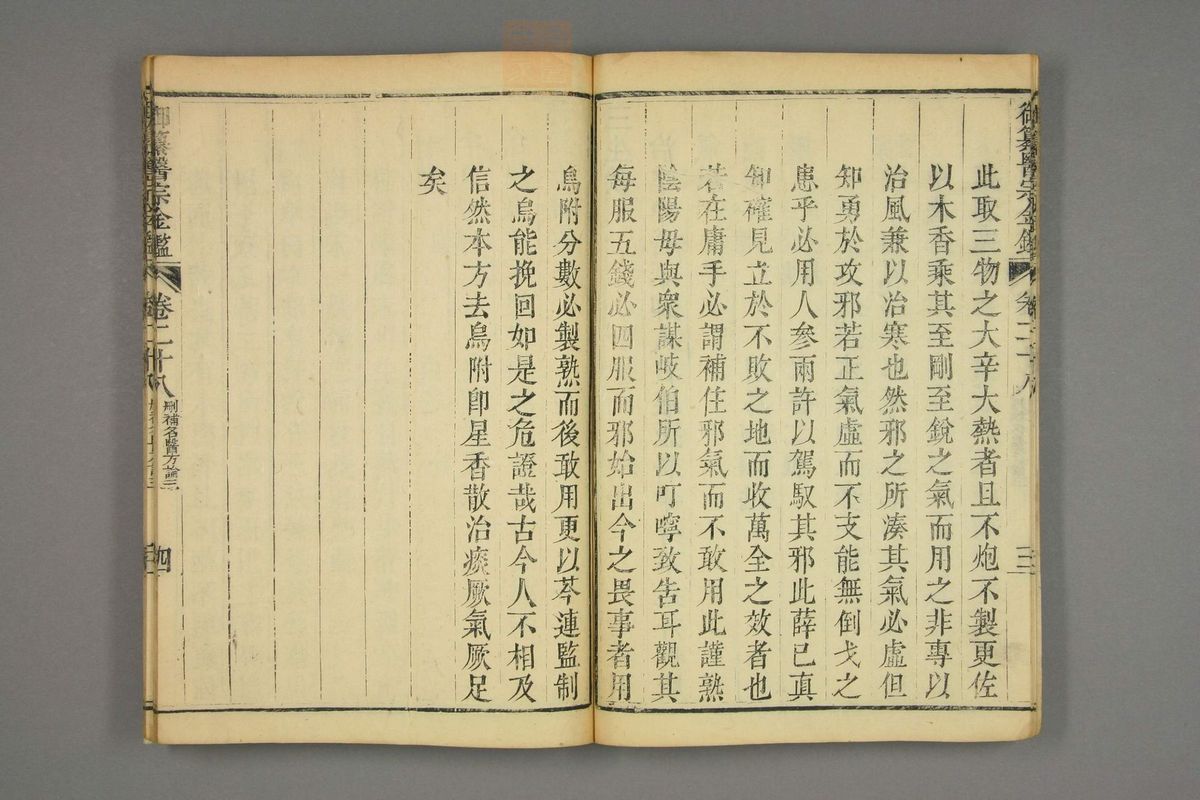 御纂醫宗金鑑
卷二十八
三
此取三物之大辛大熱者且不炮不製更佐
以木香乘其至剛至銳之氣而用之非專以
治風兼以治寒也然邪之所湊其氣必虛但
知勇於攻邪若正氣虛而不支能無倒戈之
患乎必用人參兩許以駕馭其邪此薛已真
知確見立於不敗之地而收萬全之效者也
若在庸手必謂補住邪氣而不敢用此謹熟
陰陽毋與衆謀岐伯所以叮嚀致告耳觀其
每服五錢必四服而邪始出今之畏事者用
烏附分數必製熟而後敢用更以芩連監制
之烏能挽回如是之危證哉古今人不相及
信然本方去烏附卽星香散治痰厥氣厥足
矣
御纂醫宗金鑑
卷二十八
刪補名醫方論三
四